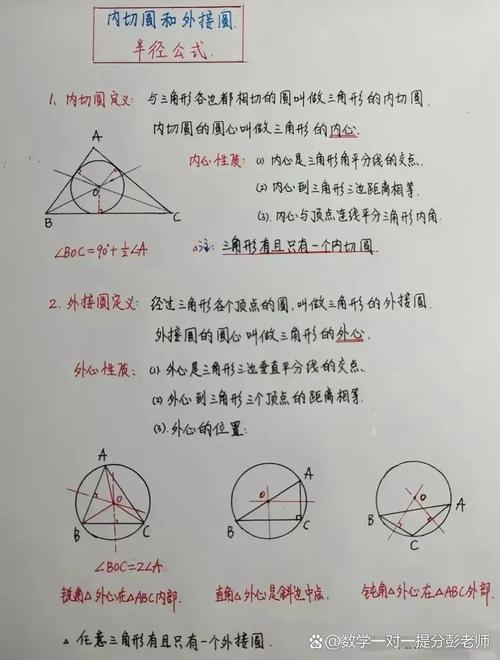 内切圆和外接圆.
半径公式.
1. 内切圆定义: 与三角形各边都相切的圆叫做三角形的内切圆.
内切圆的圆心叫做三角形的内心.
A
O
B
C
内心性质: (1) 内心是三角形角平分线的交点.
(2) 内心到三角形三边距离相等.
(3). 内心与顶点连线平分三角形内角.
∠BOC=90°+½∠A
△注: 三角形有且只有一个内切圆.
2. 外接圆定义: 经过三角形各个顶点的圆, 叫做三角形的外接圆.
外接圆的圆心叫做三角形的外心.
外心性质: (1) 外心是三角形三边垂直平分线的交点.
(2) 外心到三角形三个顶点的距离相等.
(3). 外心的位置:
A
O
B
C
∠BOC=2∠A.
锐角△外心在△ABC内部.
O
A
B
C
直角△外心是斜边中点.
O
A
B
C
钝角△外心在△ABC外部.
△ 任意三角形有且只有一个外接圆.
@数学一对一提分彭老师